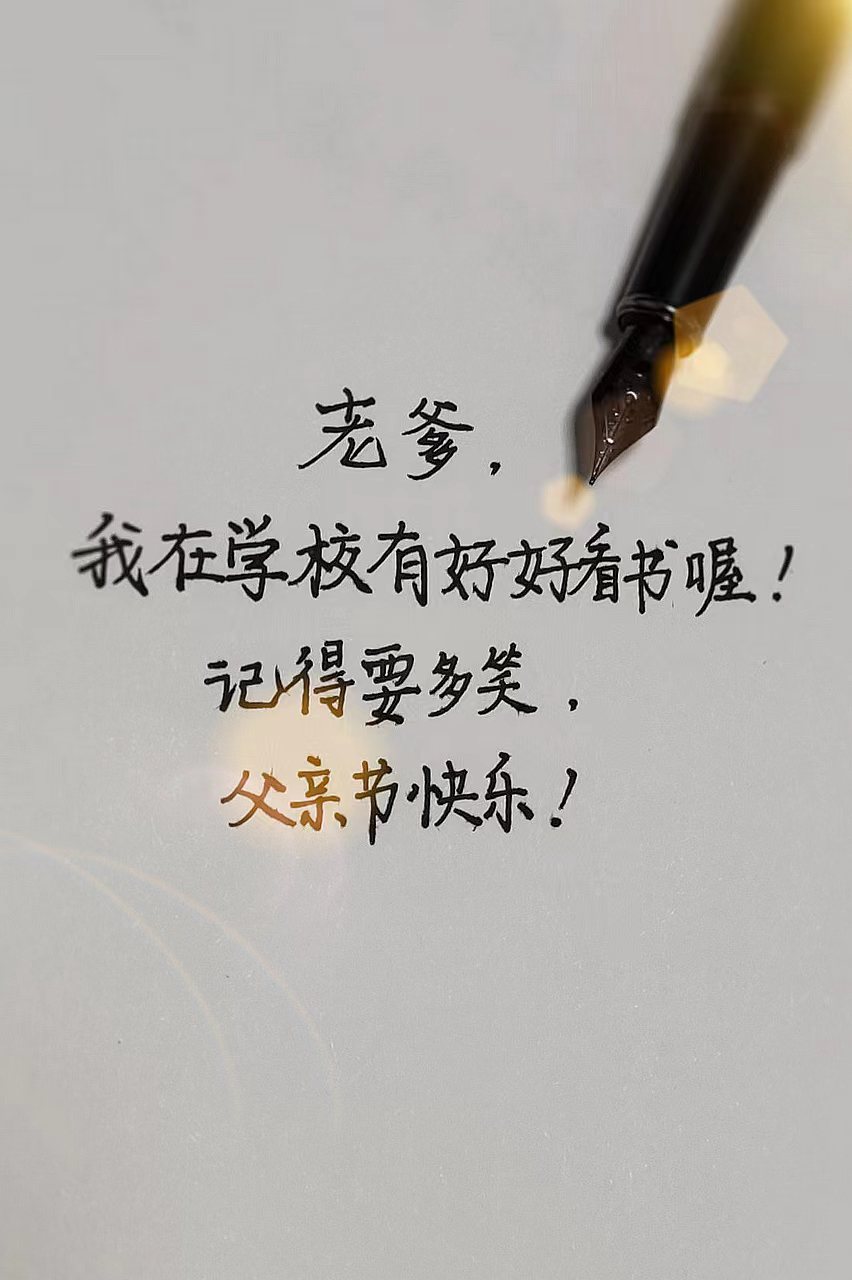 老爹,
我在学校有好好看书喔!
记得要多笑,
父亲节快乐!